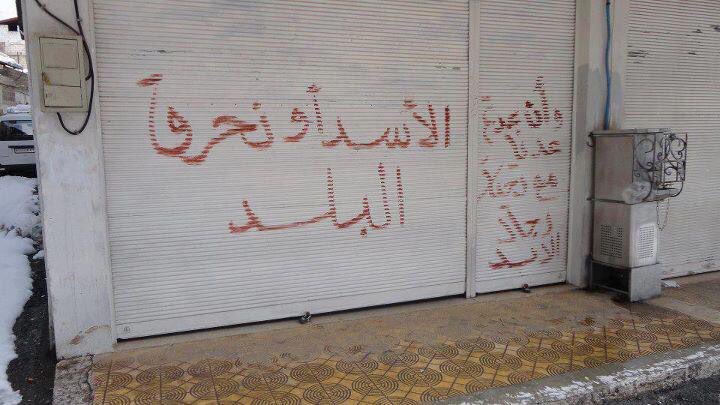 الأسد أو نحرقاً
البلد
وأن عدتم
عدنا
مع تحيات
رجال
الأسد